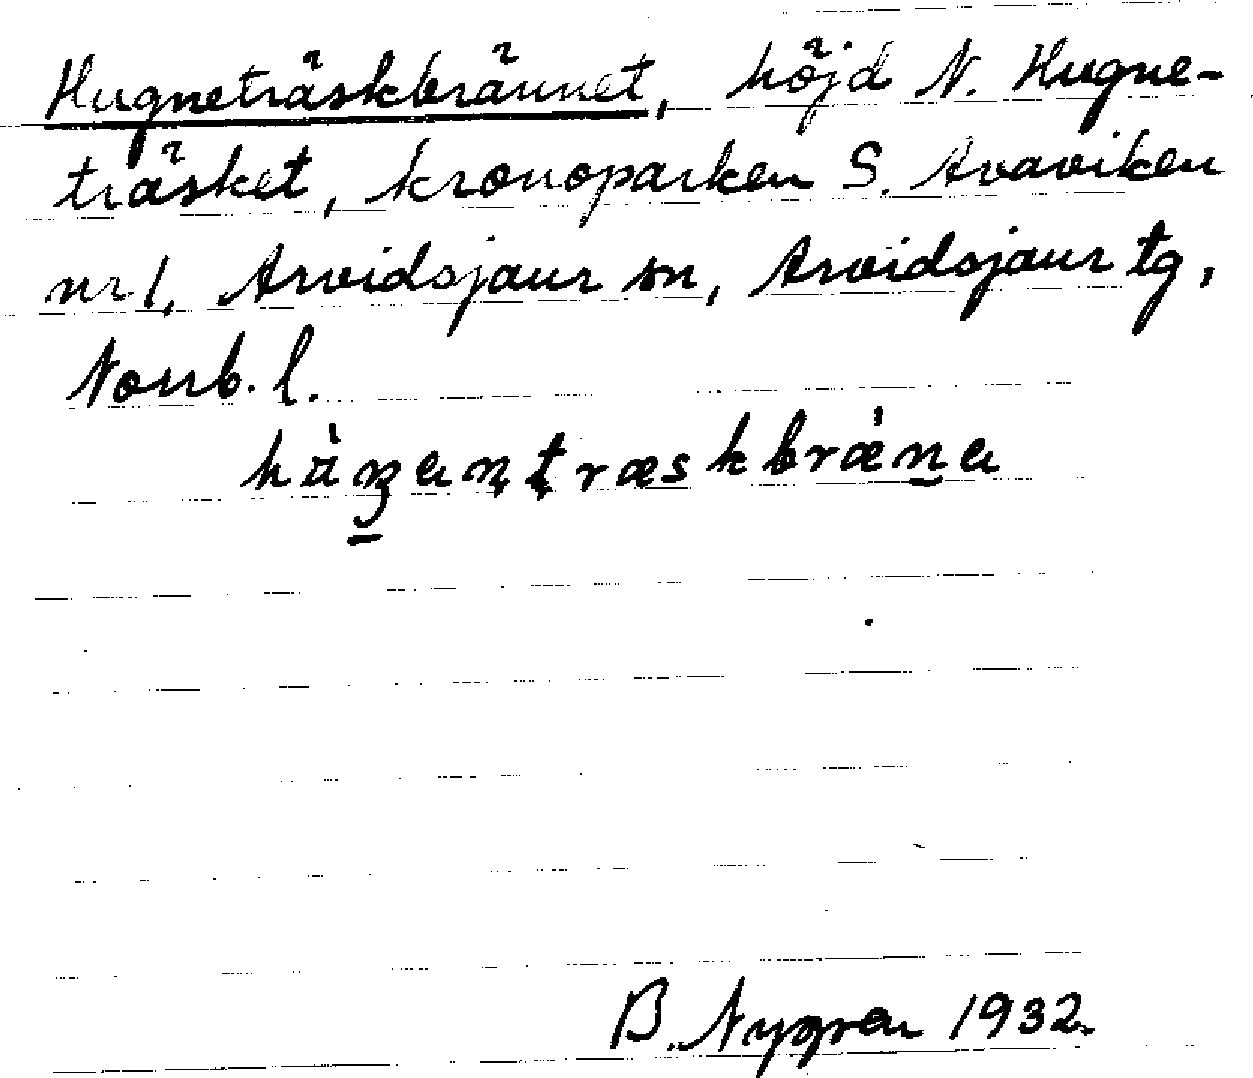 Hugneträskbrännet, höjd N. Hugne-
träsket, kronoparken S. Avaviken
nr 1, Arvidsjaur sn, Arvidsjaur tg,
Norrb. l.
B. Nygren 1932.